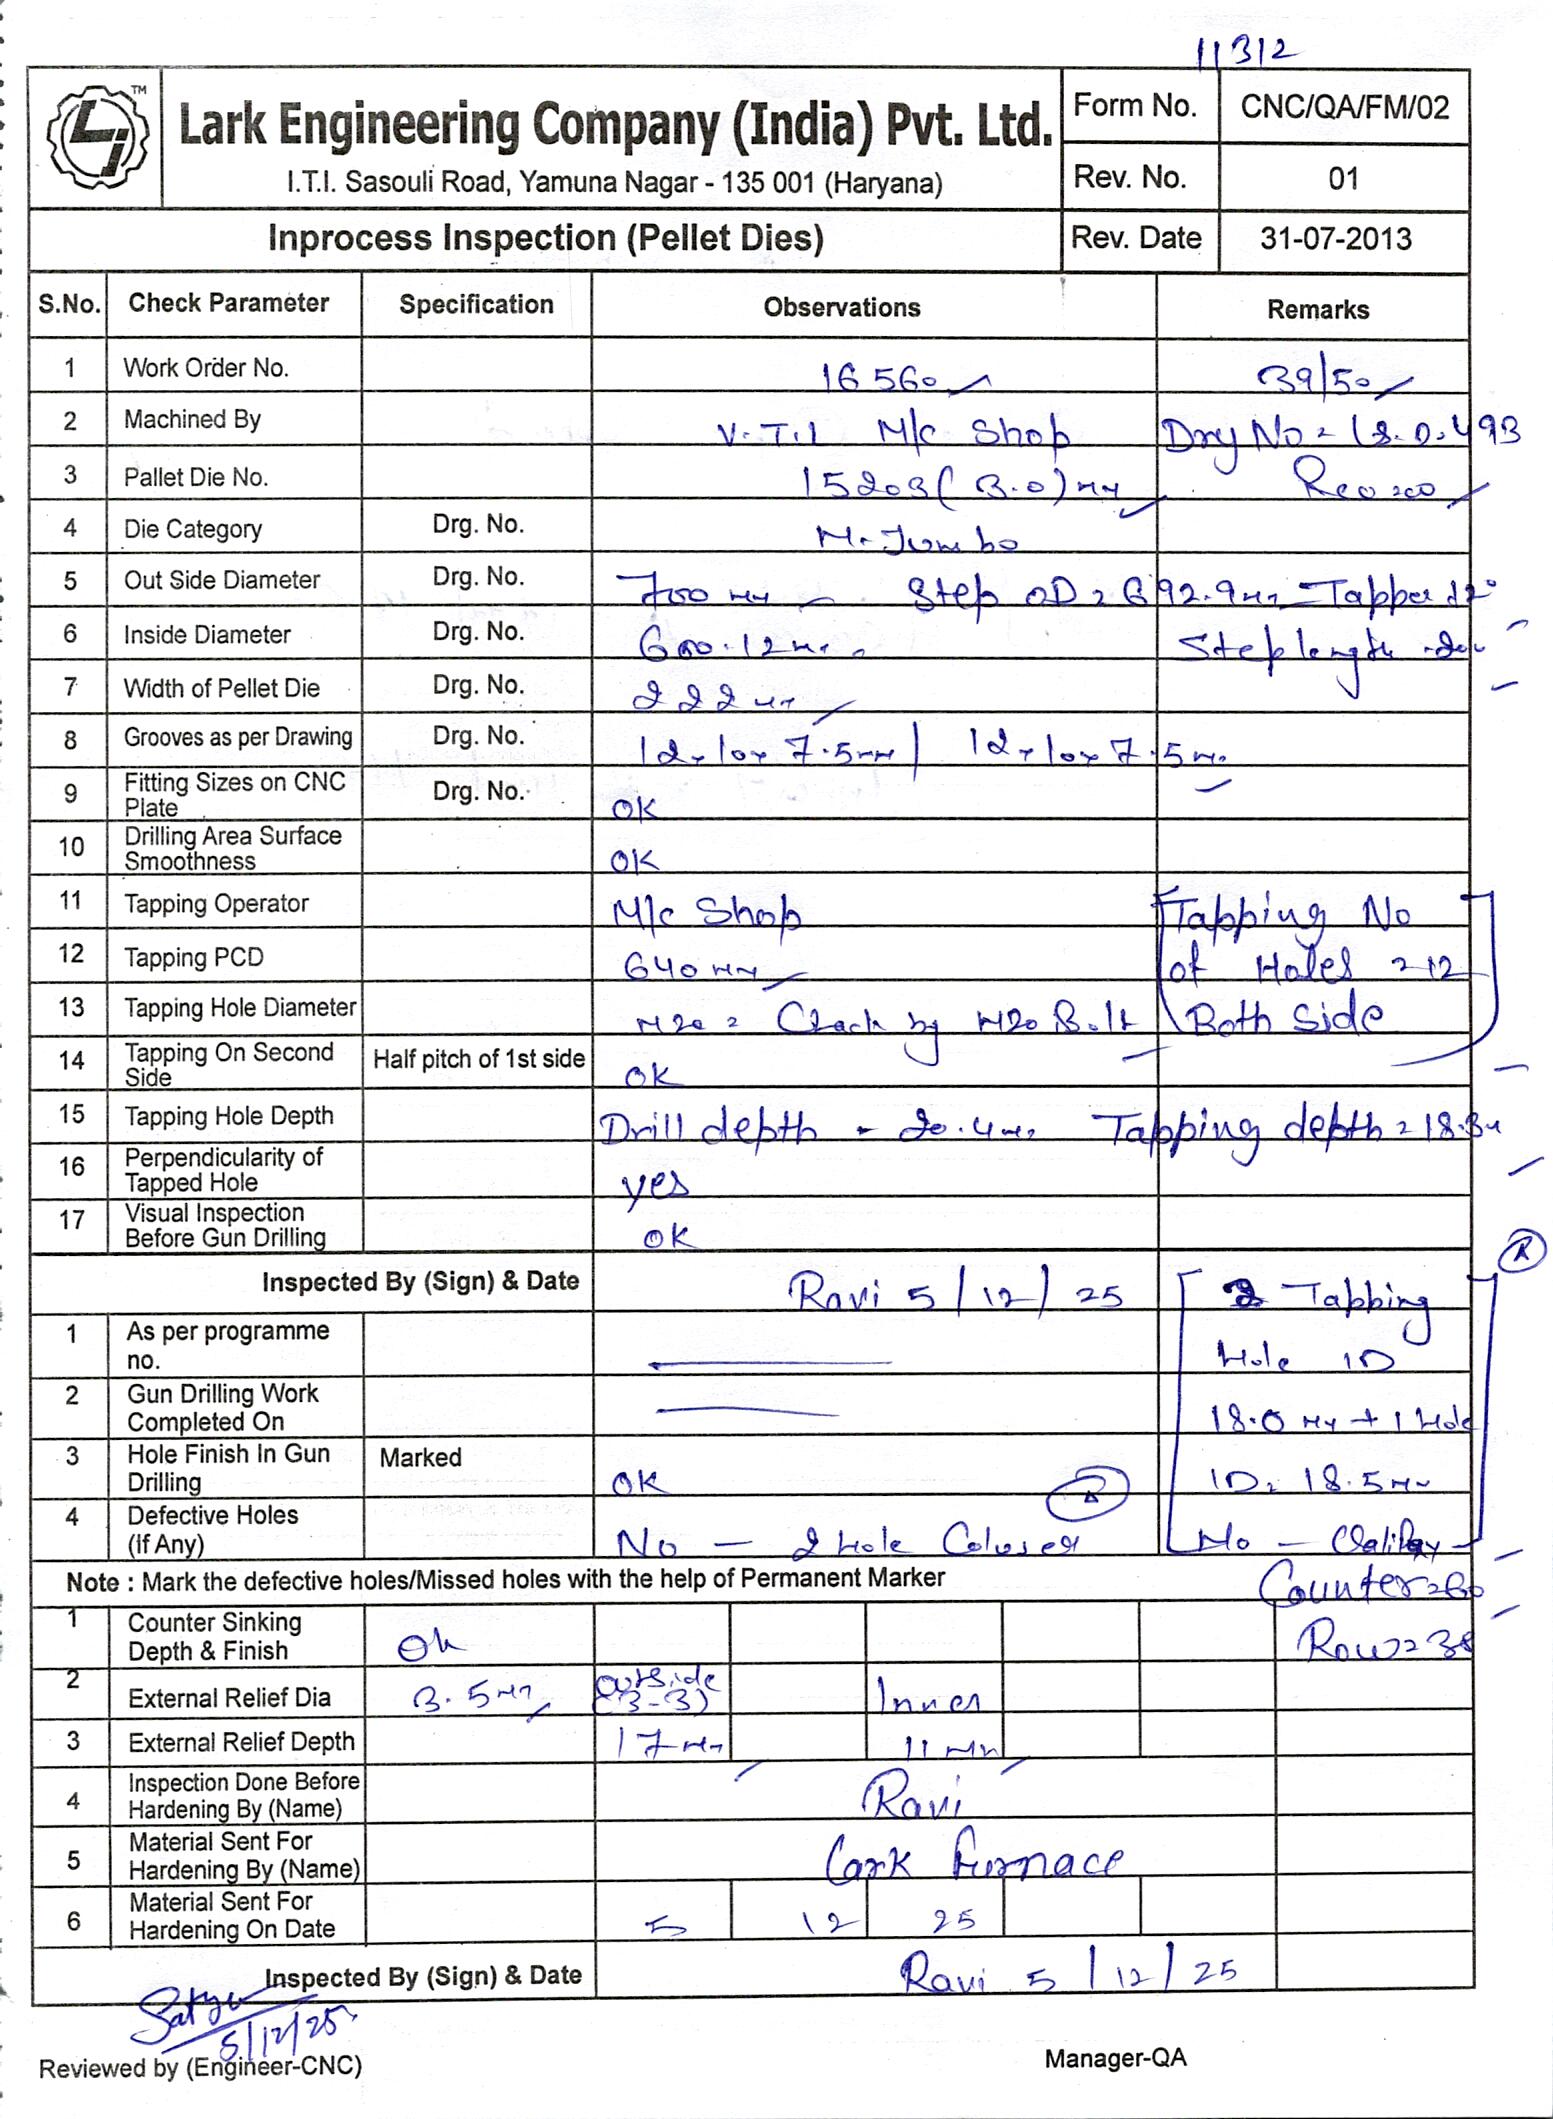 11312
TM
Lark Engineering Company (India) Pvt. Ltd.
I.T.I. Sasouli Road, Yamuna Nagar - 135 001 (Haryana)
Form No. CNC/QA/FM/02
Rev. No. 01
Inprocess Inspection (Pellet Dies)
Rev. Date 31-07-2013
S.No. Check Parameter Specification Observations Remarks
1 Work Order No. 16560 39/50
2 Machined By V.T.L M/c Shop
3 Pallet Die No. 15203 (3.0) mm
4 Die Category Drg. No.
5 Out Side Diameter Drg. No. 700 mm Step OD = 692.9
6 Inside Diameter Drg. No. 600.12 Step length
7 Width of Pellet Die Drg. No. 222
8 Grooves as per Drawing Drg. No. 12x10x7.5mm | 12x10x7.5
9 Fitting Sizes on CNC Plate Drg. No. OK
10 Drilling Area Surface Smoothness OK
11 Tapping Operator M/c Shop Tapping No
12 Tapping PCD 640 mm of Holes = 12
13 Tapping Hole Diameter M20 = Check by M20 Bolt Both Side
14 Tapping On Second Side Half pitch of 1st side OK
15 Tapping Hole Depth Drill depth - 20.4 Tapping depth = 18.3
16 Perpendicularity of Tapped Hole yes
17 Visual Inspection Before Gun Drilling OK
Inspected By (Sign) & Date Ravi 5/12/25 2 Tapping
1 As per programme no. Hole ID
2 Gun Drilling Work Completed On 18.0 + 1 Hole
3 Hole Finish In Gun Drilling Marked OK ID = 18.5
4 Defective Holes (If Any) No - 2 Hole
Note : Mark the defective holes/Missed holes with the help of Permanent Marker Counter = 60
1 Counter Sinking Depth & Finish Ok Row = 38
2 External Relief Dia 3.5 outside (3-3) Inner
3 External Relief Depth 17 11 mm
4 Inspection Done Before Hardening By (Name) Ravi
5 Material Sent For Hardening By (Name) Lark Furnace
6 Material Sent For Hardening On Date 5 12 25
Inspected By (Sign) & Date Ravi 5/12/25
5/12/25
Reviewed by (Engineer-CNC)
Manager-QA